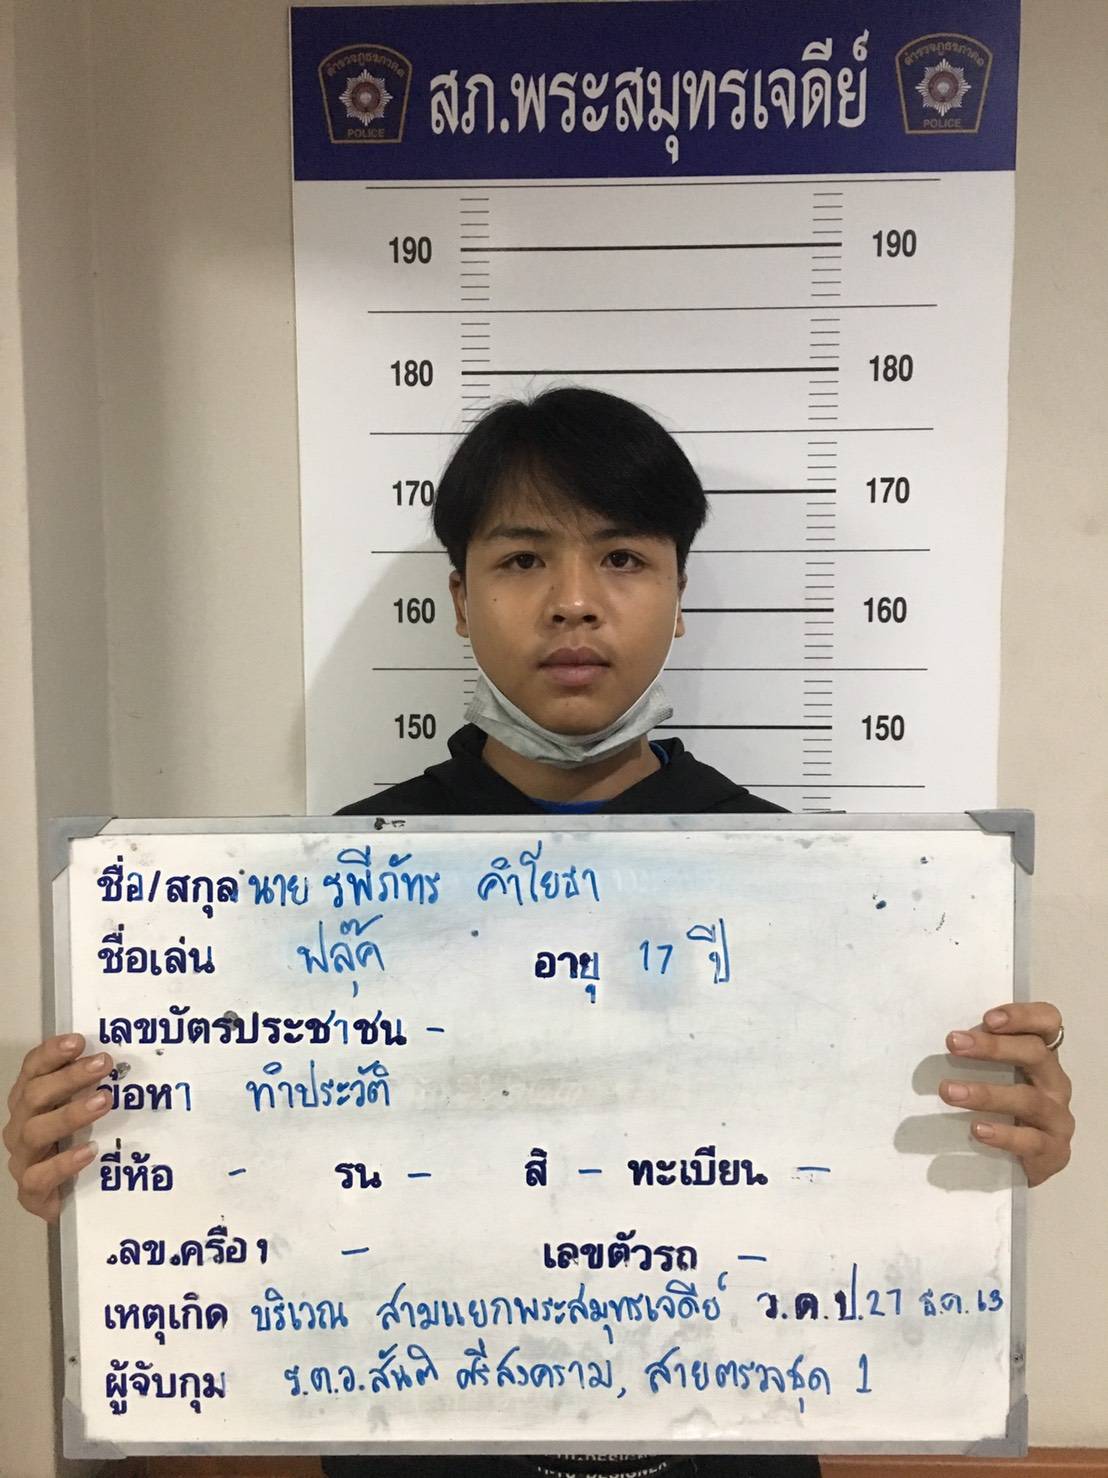 ตำรวจภูธรภาค๑ POLICE สภ.พระสมุทรเจดีย์ ตำรวจภูธรภาค๑ POLICE
190 190
180 180
170 170
160 160
150 150
ชื่อ/สกุล นาย รพีภัทร คำโยธา
ชื่อเล่น ฟลุ๊ค อายุ 17 ปี
เลขบัตรประชาชน -
ข้อหา ทำประวัติ
ยี่ห้อ - รุน - สี - ทะเบียน -
ลข.ครื่อง - เลขตัวรถ -
เหตุเกิด บริเวณ สามแยกพระสมุทรเจดีย์ ว.ด.ป.27 ธ.ค. 63
ผู้จับกุม ร.ต.อ.สันติ ศรีสงคราม, สายตรวจชุด 1